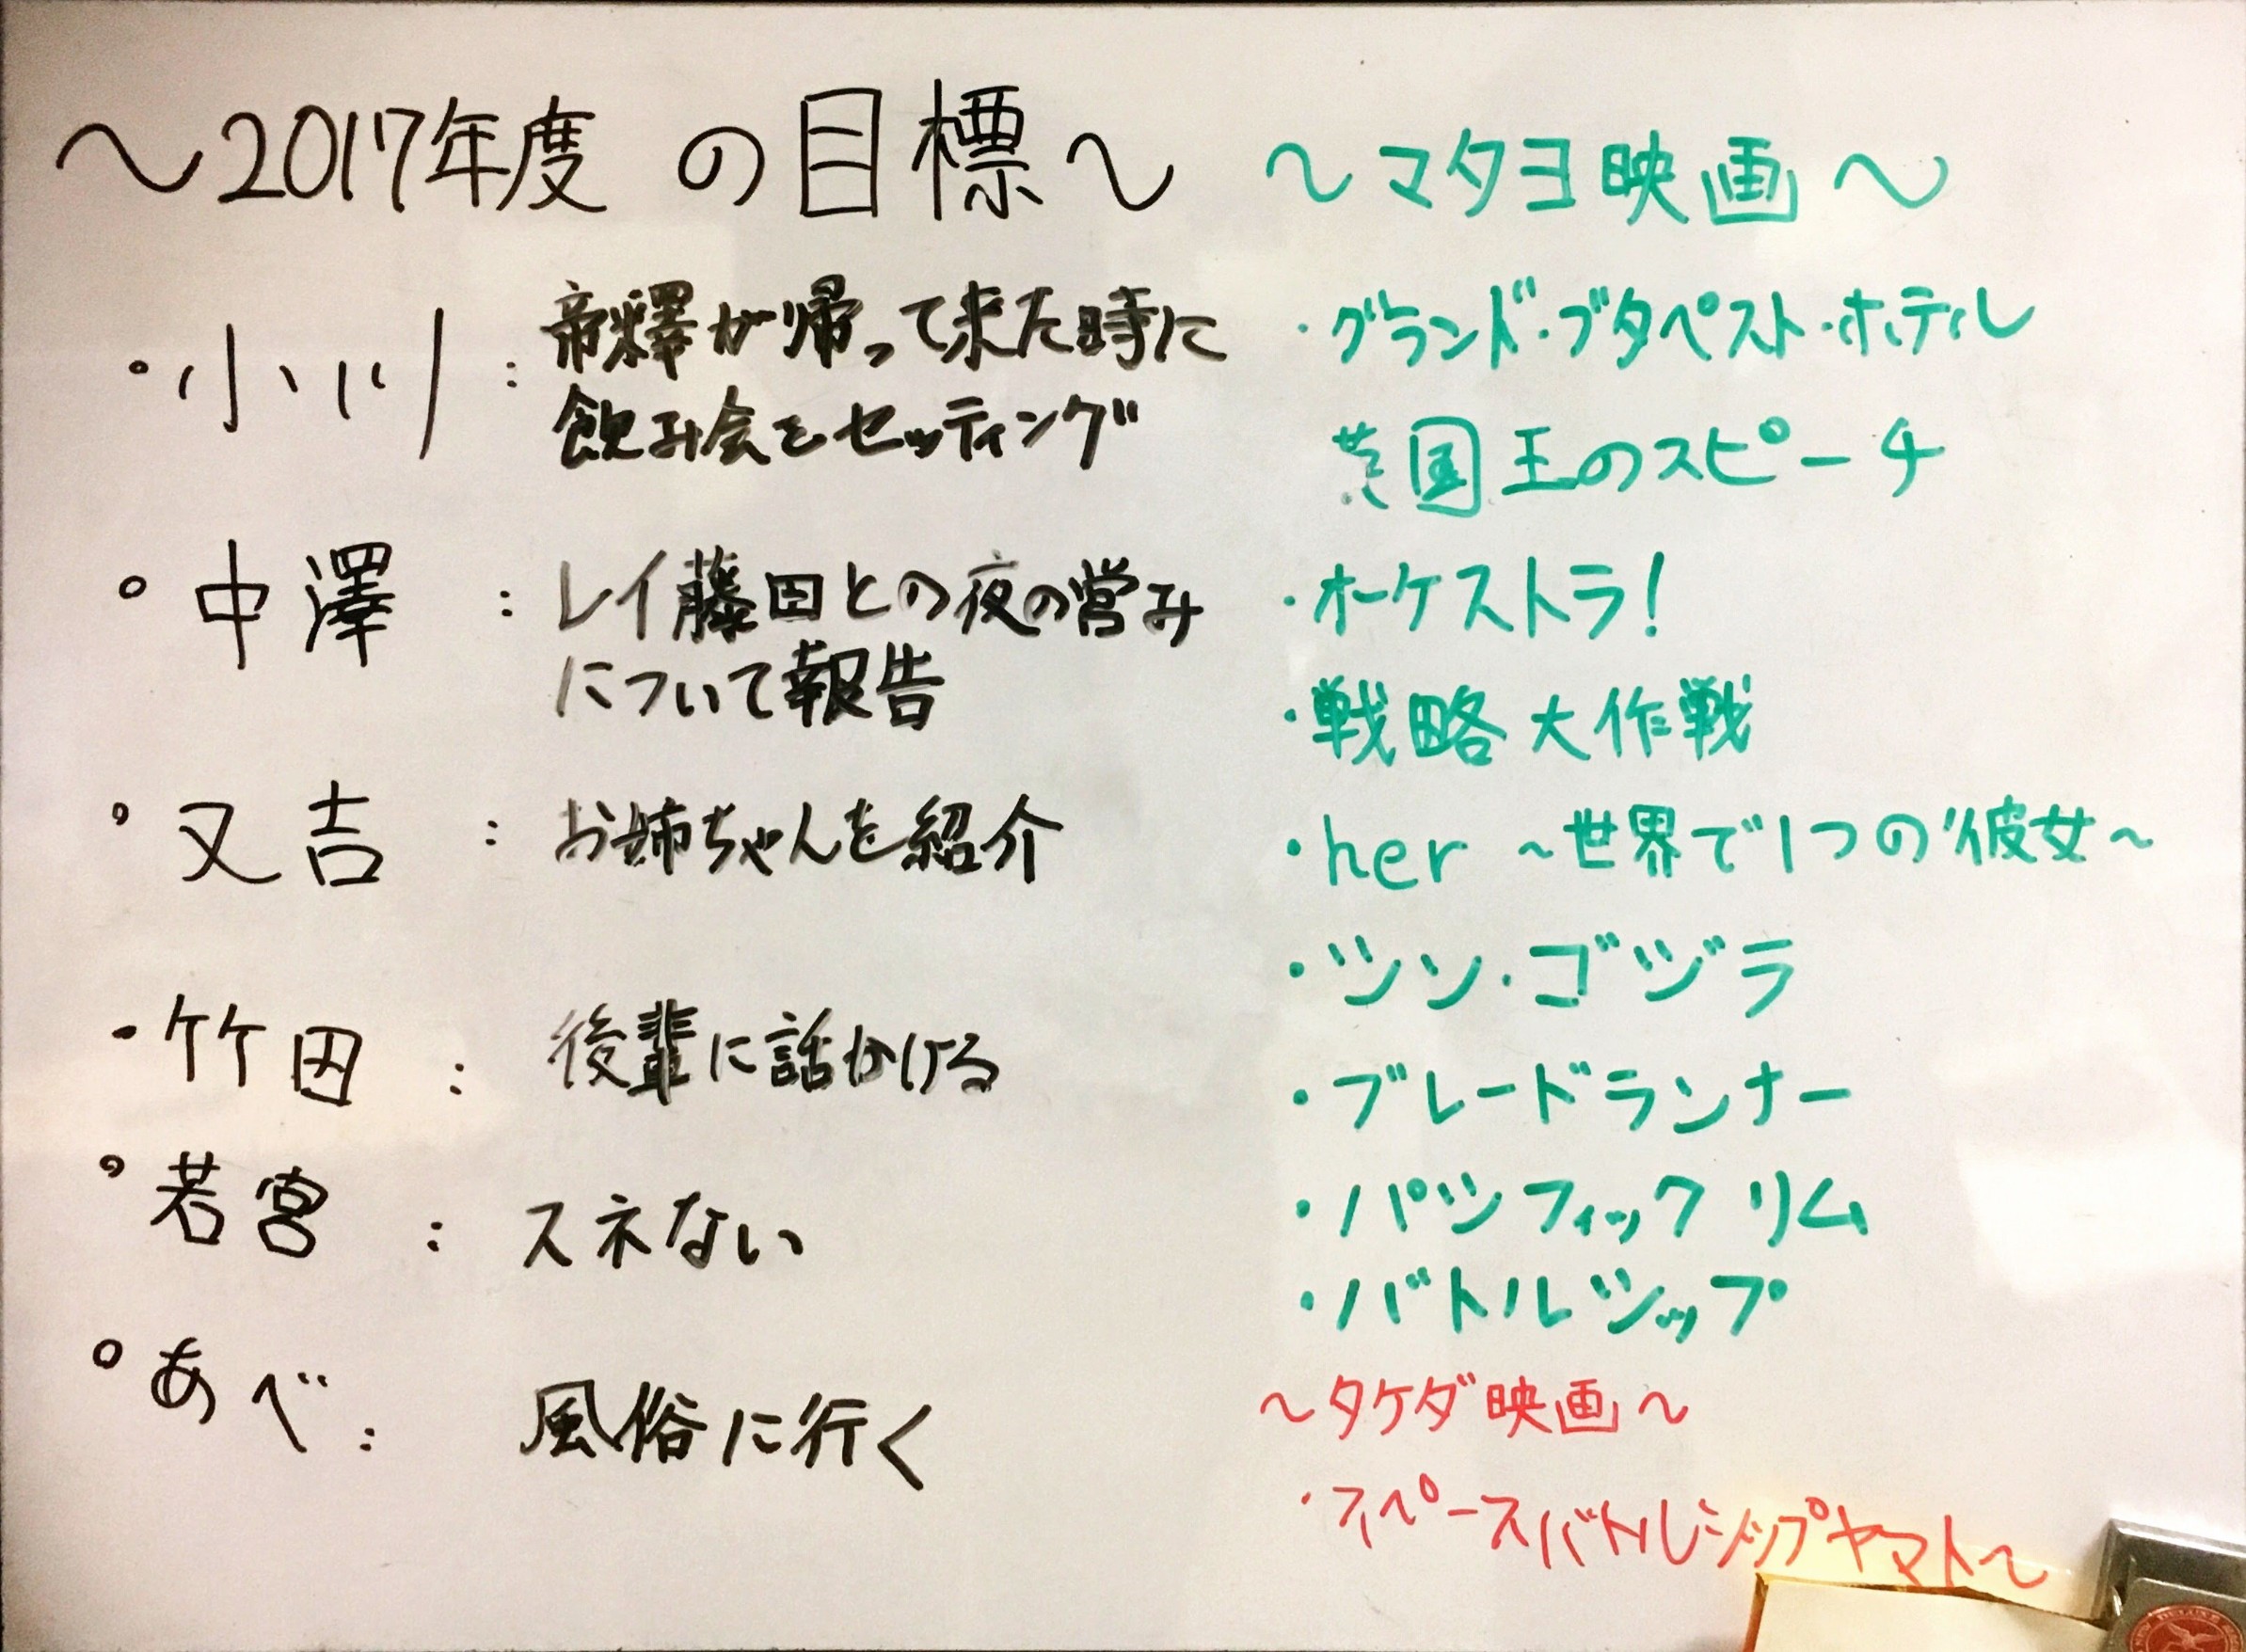 ～2017年度の目標～
・小川：帝釋が帰って来た時に
飲み会をセッティング
・中澤：レイ藤田との夜の営み
について報告
・又吉：お姉ちゃんを紹介
・竹田：後輩に話かける
・若宮：スネない
・あべ：風俗に行く
～マタヨ映画～
・グランド・ブタペスト・ホテル
英国王のスピーチ
・オーケストラ！
・戦略大作戦
・her ～世界で1つの彼女～
・シン・ゴジラ
・ブレードランナー
・パシフィック リム
・バトルシップ
～タケダ映画～
・スペースバトルシップヤマト～